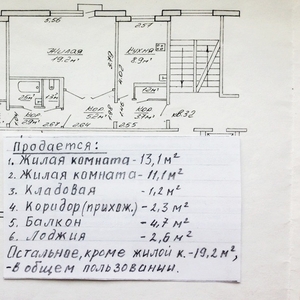 5,56
2.51
Жилая
19.2 м²
Кухня
8,9 м²
4.02
1.2 м²
Кор
5.2 м²
Кор
3.7 м²
1.45
кв.32
Кор
2.67
2.64
2.55
Продается:
1. Жилая комната - 13,1 м²
2. Жилая комната - 11,1 м²
3. Кладовая - 1,2 м²
4. Коридор (прихож.) - 2,3 м²
5. Балкон - 4,7 м²
6. Лоджия - 2,6 м²
Остальное, кроме жилой к. - 19,2 м²,
- в общем пользовании.